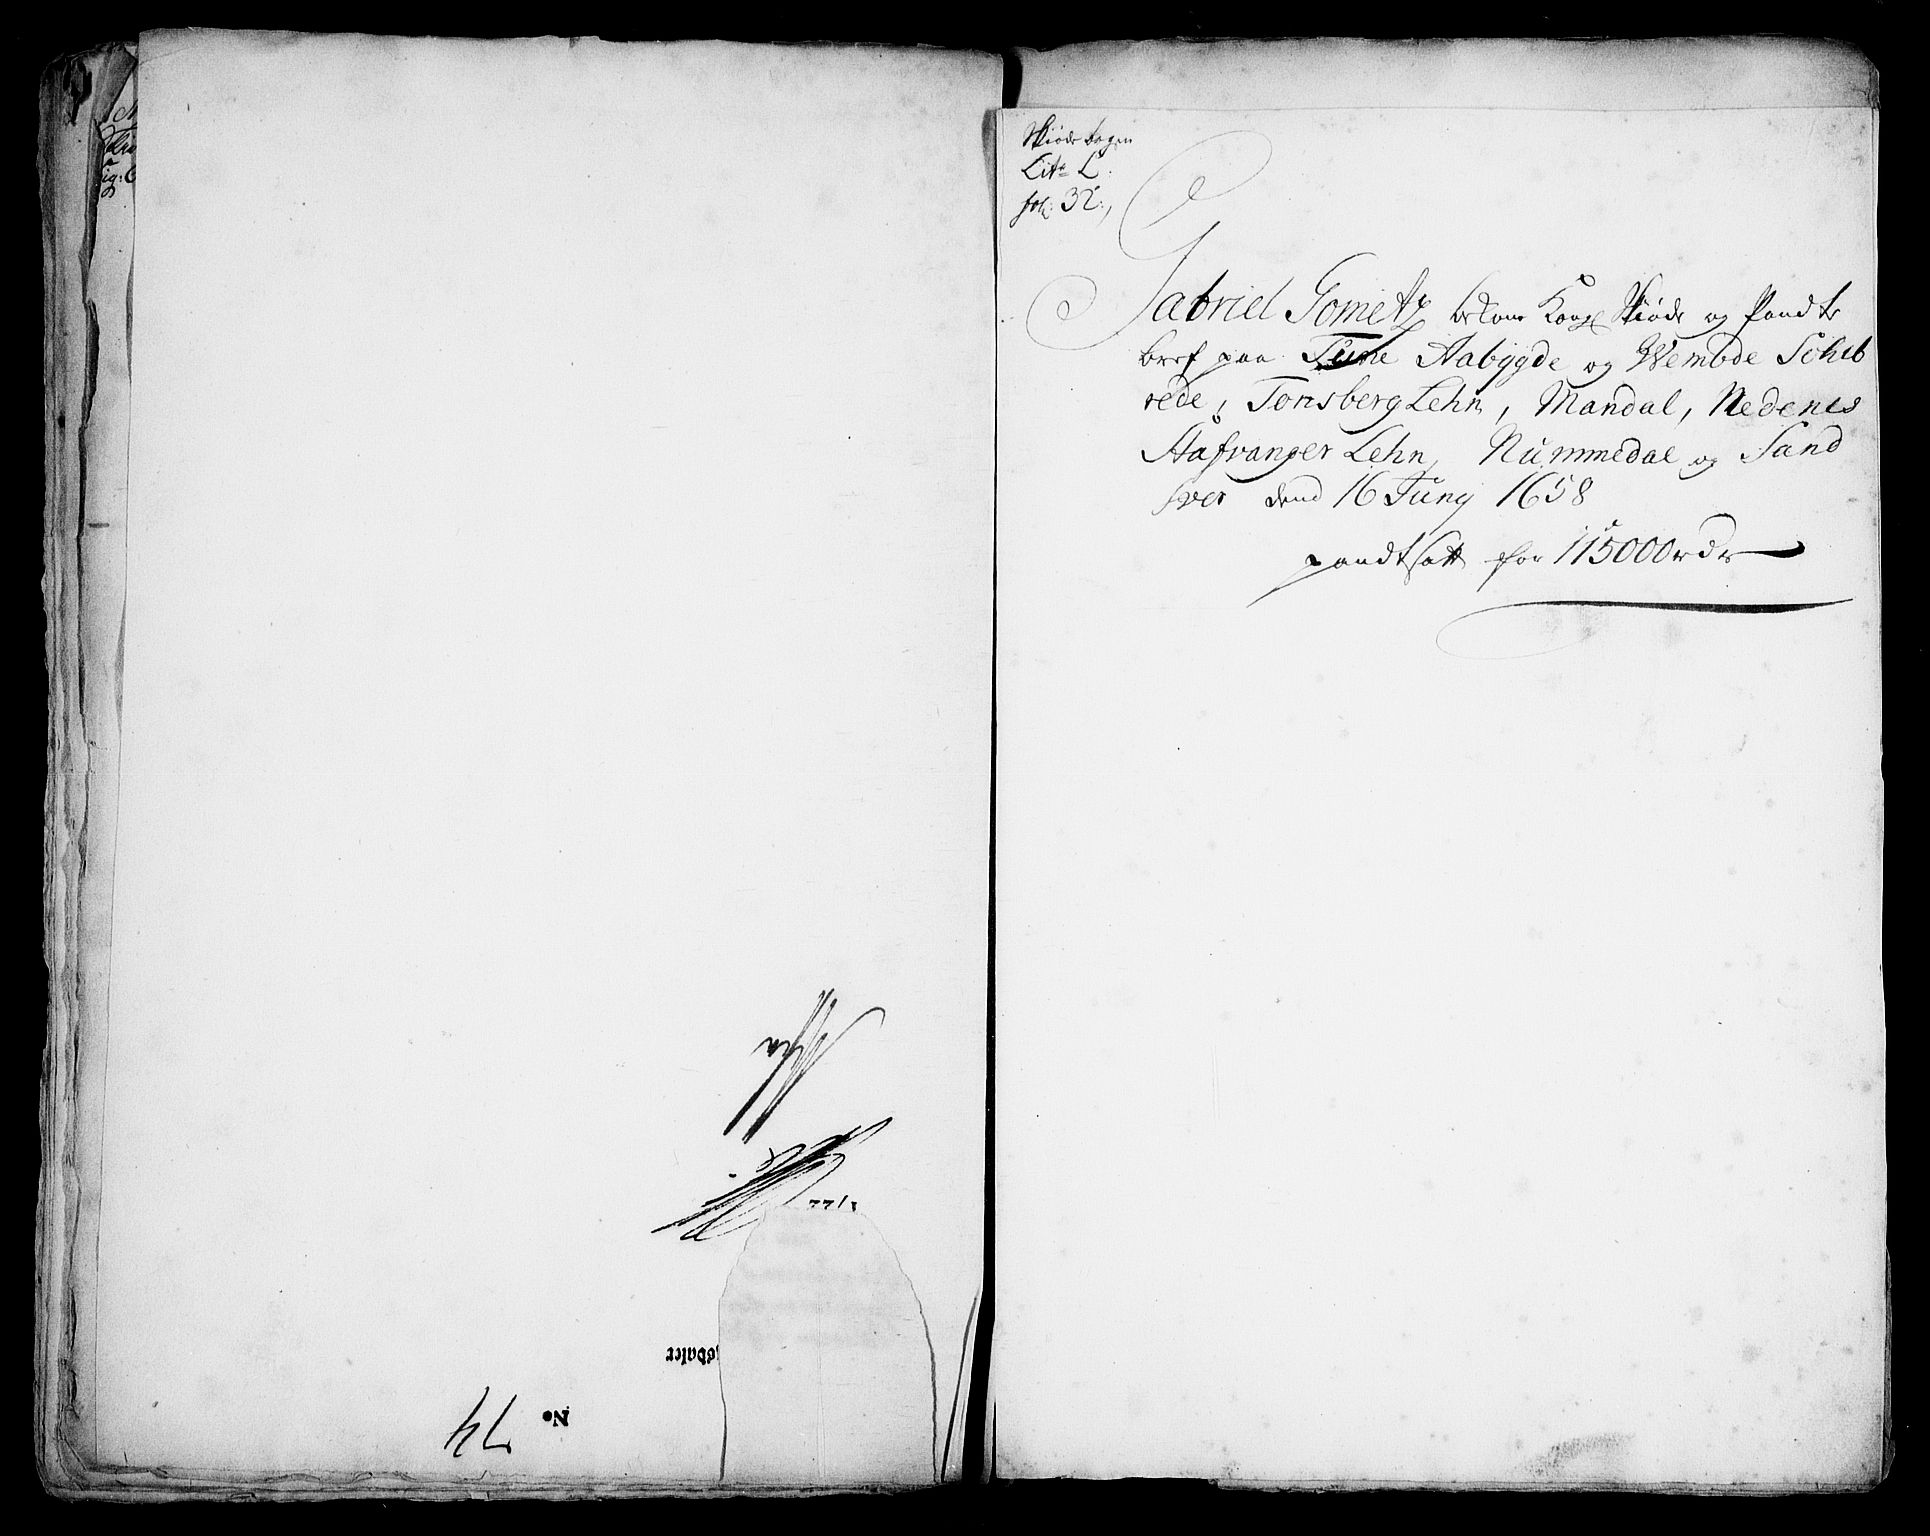 Skiøde bogen
Lit. L.
fol: 32:,
Gabriel Gometz bekom Kongl Skiøde og Pandte
bref paa Tune Aabygde og Wembde Schib
rede, Tonsberg Lehn, Mandal, Nedenes
Stafvanger Lehn, Nummedal og Sand
sver dend 16 Juny 1658
pandtsatt for 115000 rdr
1722
No 74